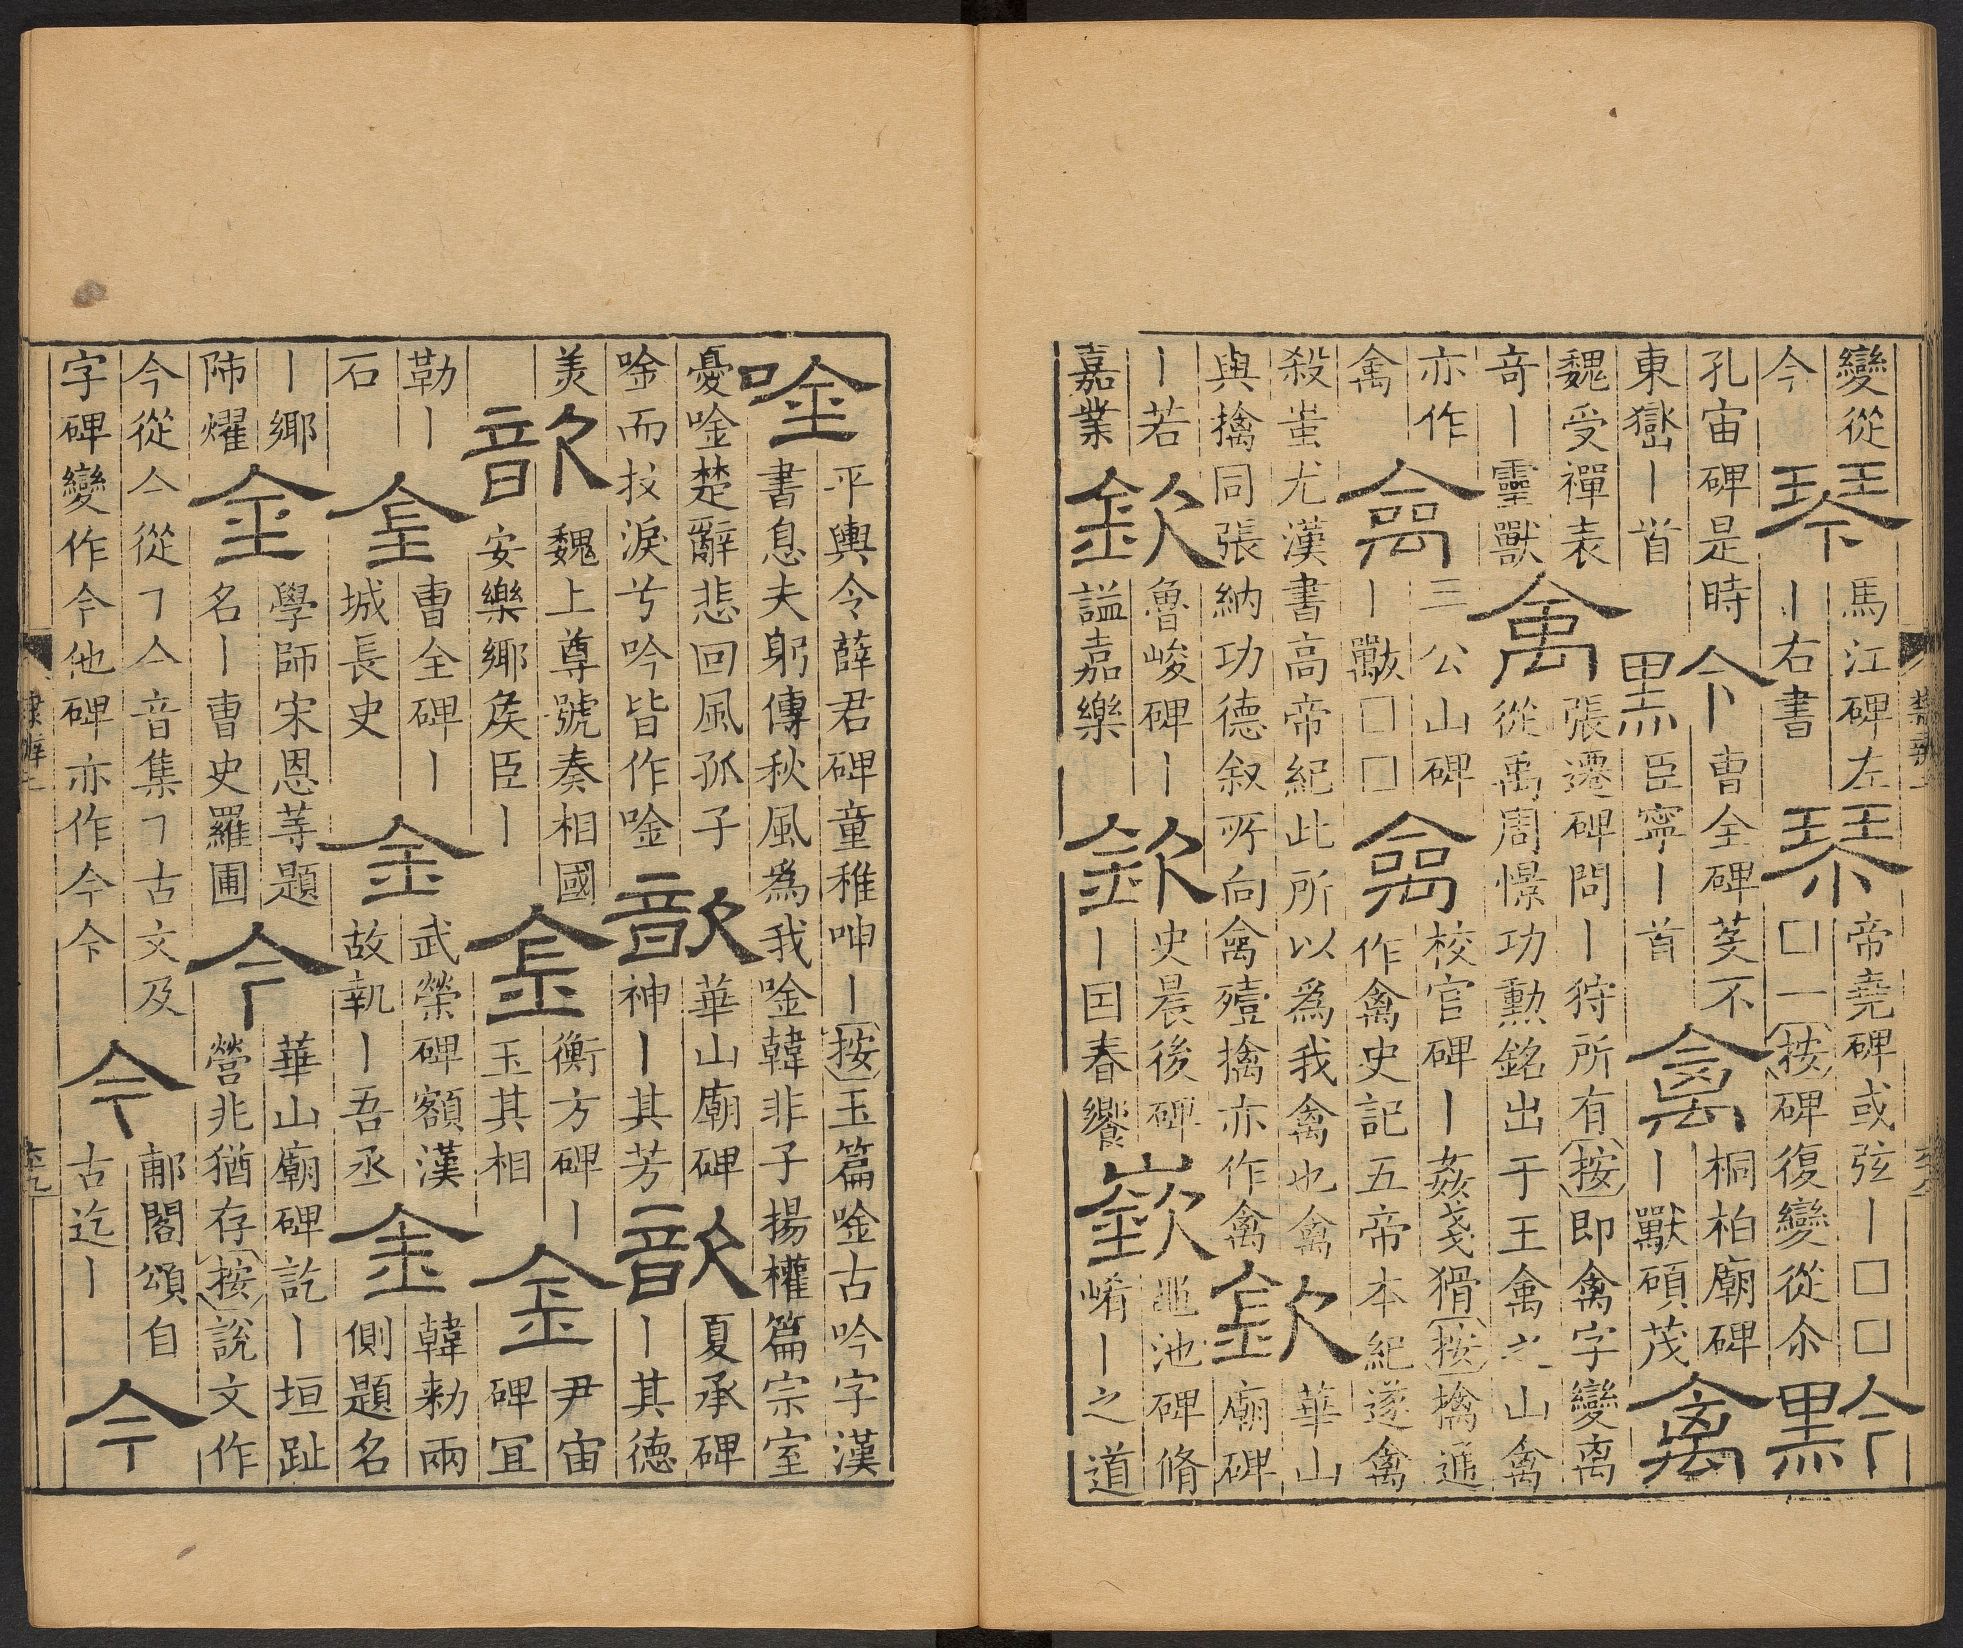 變從
今
琴
馬江碑左
丨右書
琴
帝堯碑或弦丨□□
□一按碑復變從尒
黔
孔宙碑是時
東嶽丨首
黔
曹全碑芟不
臣寧丨首
禽
桐柏廟碑
丨獸碩茂
禽
魏受禪表
奇丨靈獸
禽
張遷碑問丨狩所有按即禽字變离
從禹周憬功勳銘出于王禽之山禽
亦作
禽
禽
三公山碑
丨獸□□
禽
校官碑丨姦㦮猾按擒通
作禽史記五帝本紀遂禽
殺蚩尤漢書高帝紀此所以為我禽也禽
與擒同張納功德叙所向禽殪擒亦作禽
欽
華山
廟碑
丨若
嘉業
欽
魯峻碑丨
謚嘉樂
欽
史晨後碑
丨因春饗
嶔
黽池碑脩
崤丨之道
唫
平輿令薛君碑童稚呻丨按玉篇唫古吟字漢
書息夫躬傳秋風為我唫韓非子揚權篇宗室
憂唫楚辭悲回風孤子
唫而抆淚兮吟皆作唫
歆
華山廟碑
神丨其芳
歆
夏承碑
丨其德
羙
歆
魏上尊號奏相國
安樂鄉矦臣丨
金
衡方碑丨
玉其相
金
尹宙
碑冝
勒丨
石
金
曹全碑丨
城長史
金
武榮碑額漢
故執丨吾丞
金
韓勑兩
側題名
丨鄉
陃燿
金
學師宋恩等題
名丨曹史羅圃
今
華山廟碑訖丨垣趾
營兆猶存按說文作
今從亼從㇇亼音集㇇古文及
字碑變作今他碑亦作今今
今
郙閣頌自
古迄丨
今
隸辨